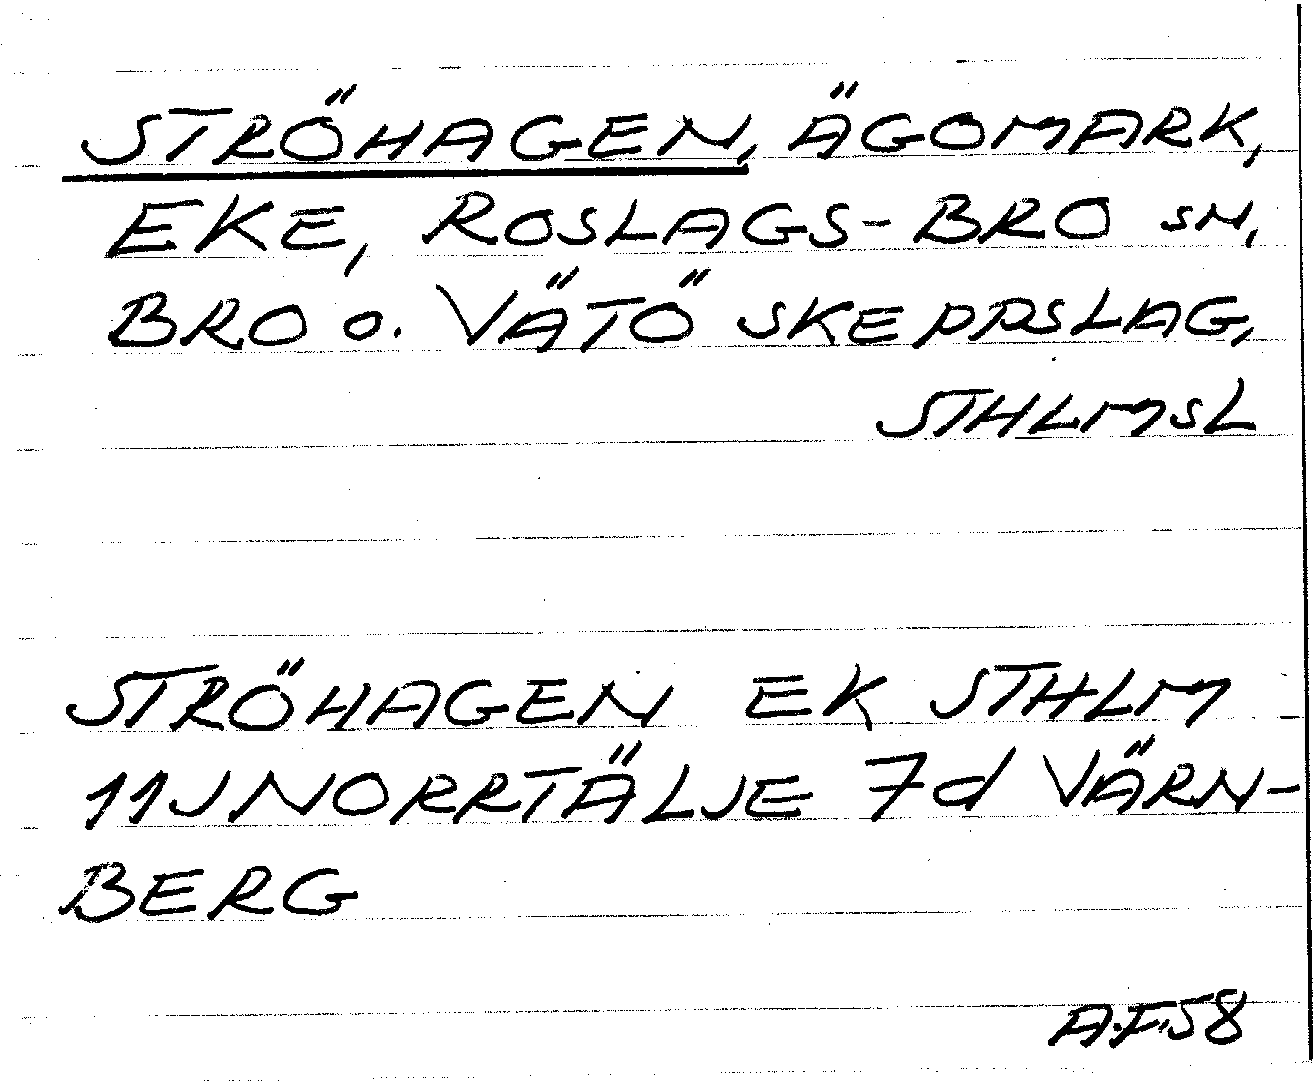 STRÖHAGEN, ÄGOMARK,
EKE, ROSLAGS-BRO SN,
BRO O. VÄTÖ SKEPPSLAG,
STHLMSL
STRÖHAGEN EK STHLM
11J NORRTÄLJE 7d VÄRN-
BERG
A.F.58